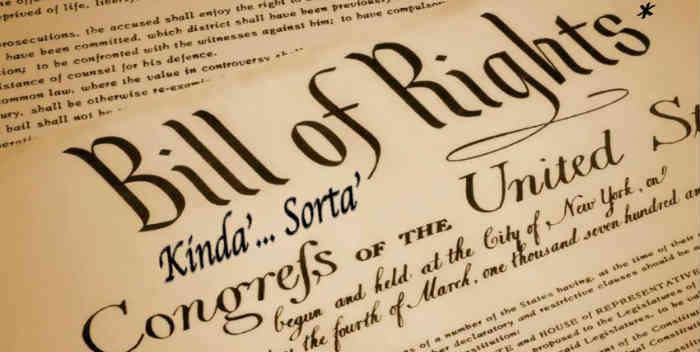 of life,
rosecutions, the accused shall enjoy the right to
have been committed, which district shall have been previously
ion; to be confronted with the witnesses against him; to have compulsor
istance of counsel for his defence.
ommon law, where the value in controversy
ury, shall be otherwise re-exam
bail shall not be
Bill of Rights*
Kinda'... Sorta'
Congreſs OF THE United St
begun and held at the City of New York, on
the fourth of March, one thousand seven hundred an
of a number of the States having, at the time of their
declaratory and restrictive clauses should be
AND HOUSE OF REPRESENTATIV
to the Legislatures of